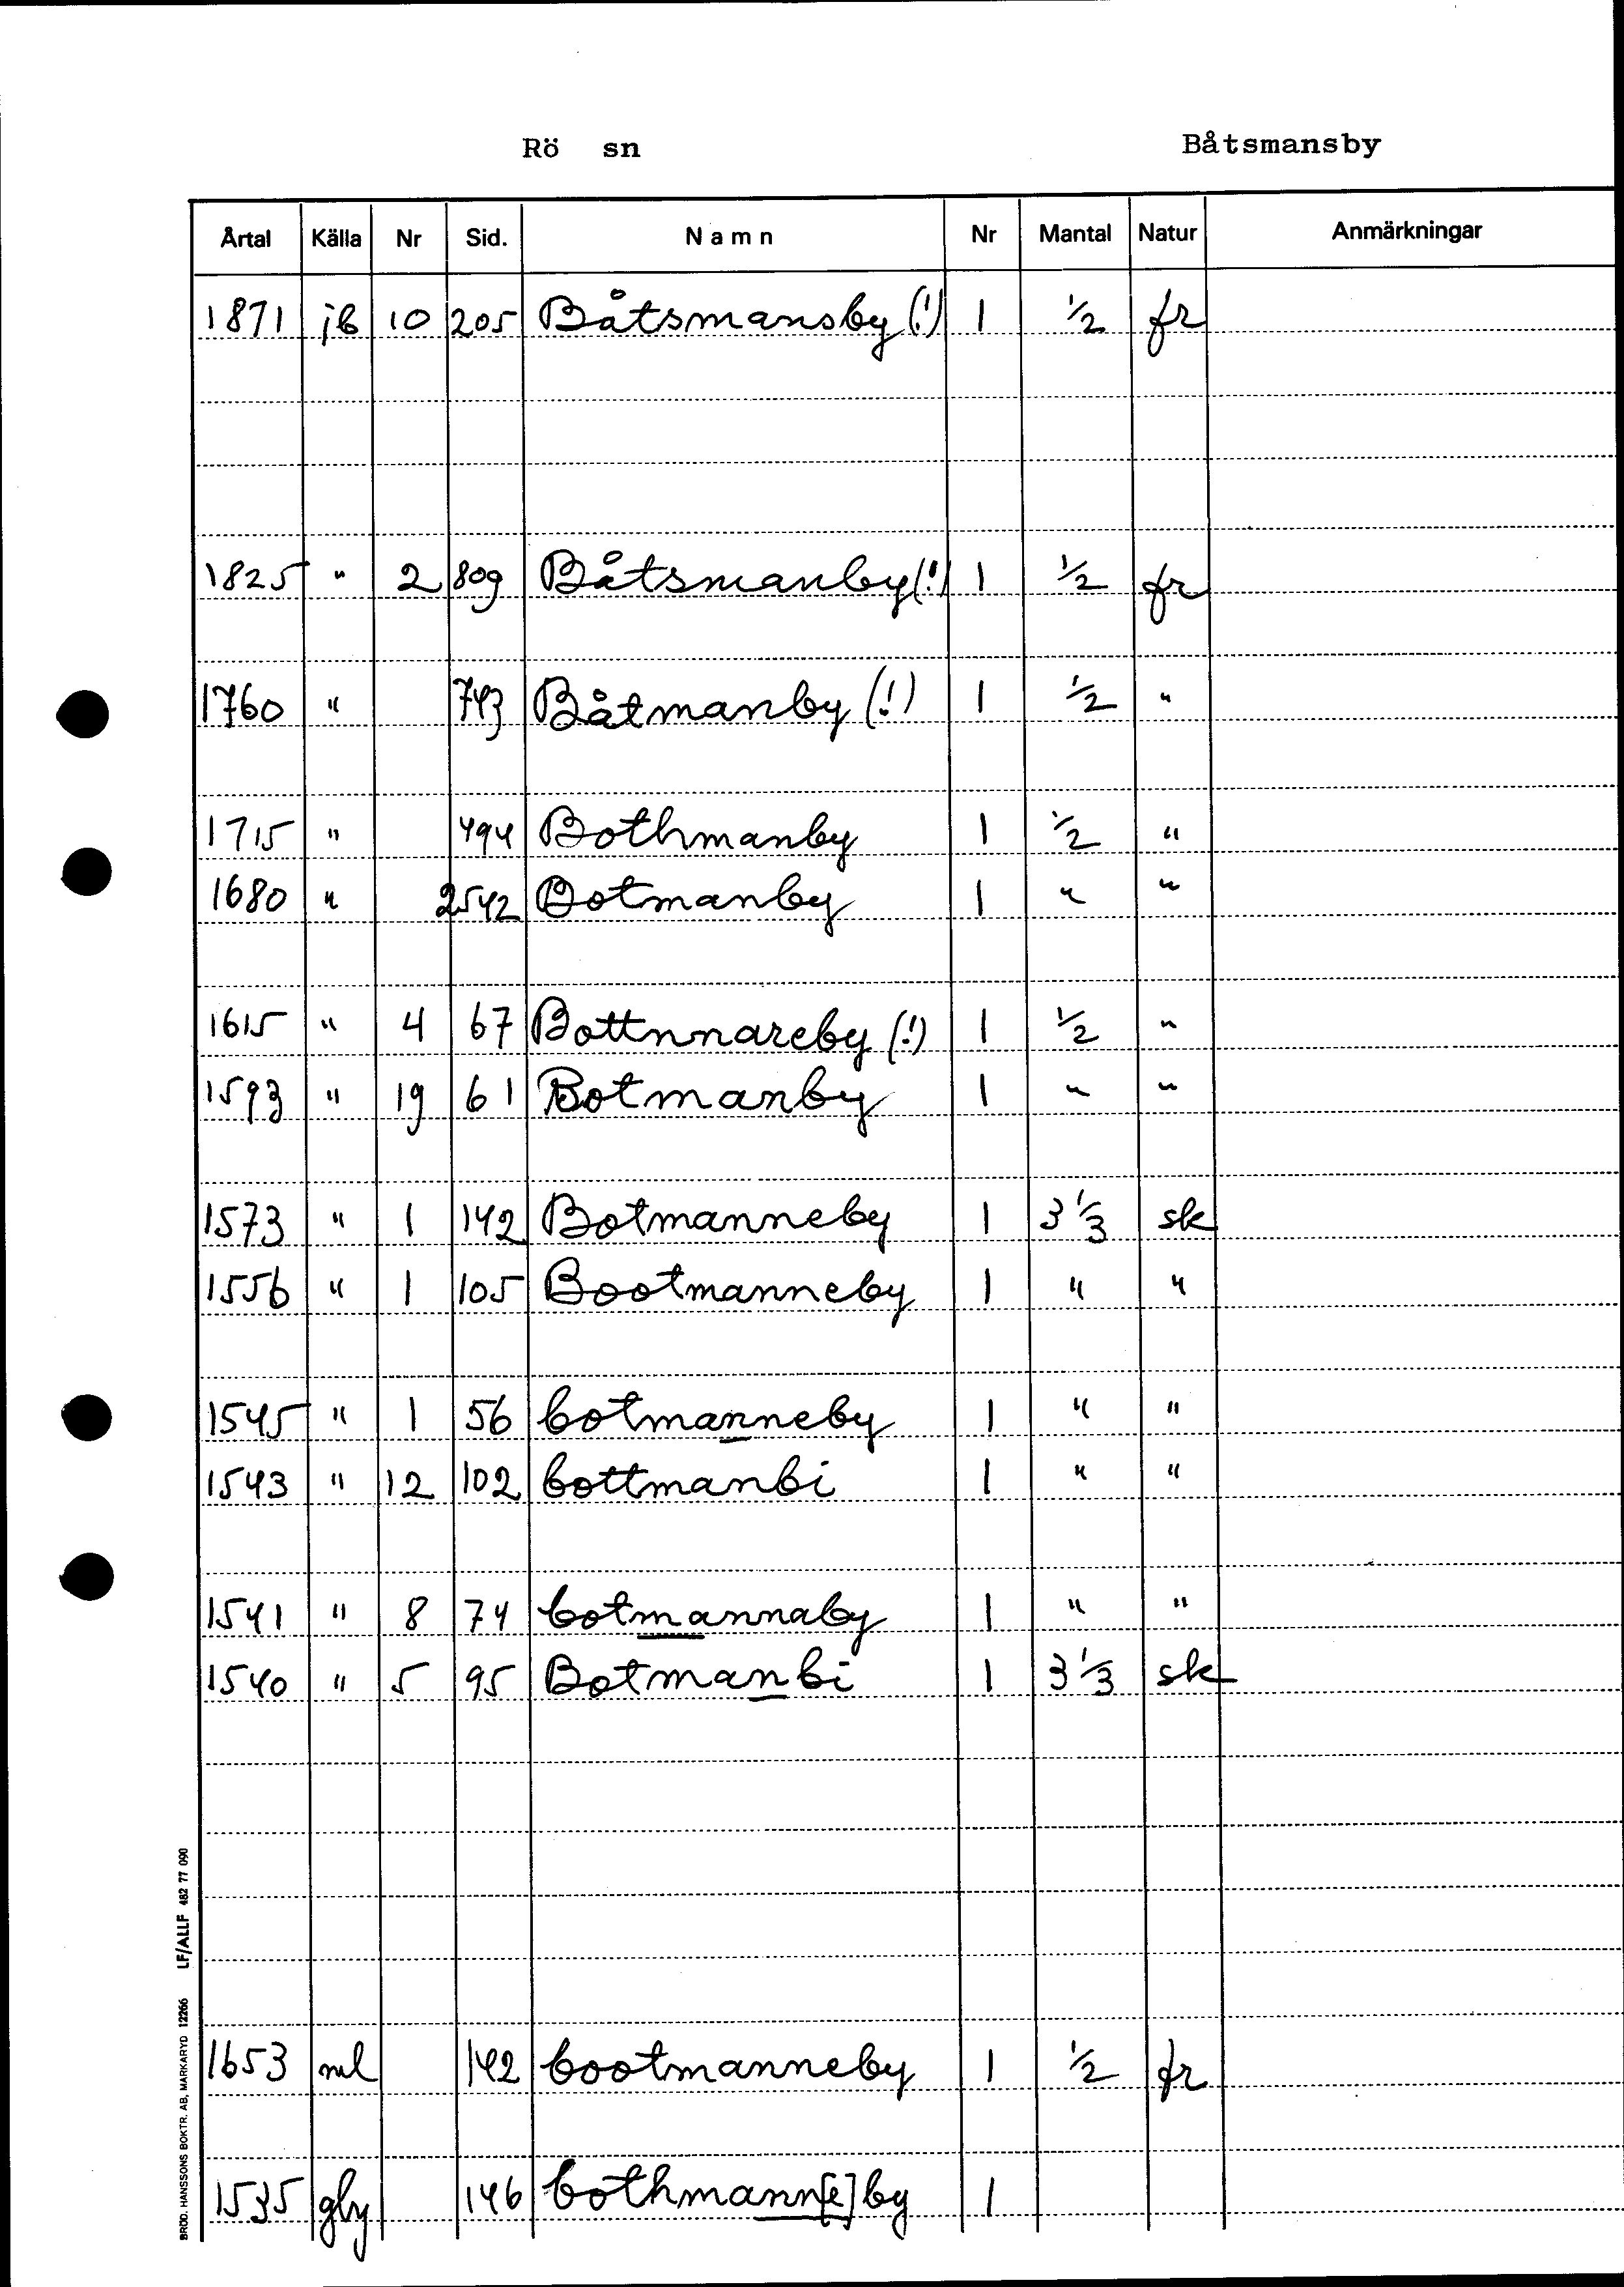 Rö sn Båtsmansby
Årtal Källa Nr Sid. Namn Nr Mantal Natur Anmärkningar
1871 jb 10 205 Båtsmansby (!) 1 1/2 fr
1825 " 2 809 Båtsmanby (!) 1 1/2 fr
1760 " 743 Båtmanby (!) 1 1/2 "
1715 " 494 Bothmanby 1 1/2 "
1680 " 2542 Botmanby 1 " "
1615 " 4 67 Bottnnareby (!) 1 1/2 "
1593 " 19 61 Botmanby 1 " "
1573 " 1 142 Botmanneby 1 3 1/3 sk
1556 " 1 105 Bootmanneby 1 " "
1545 " 1 56 botmanneby 1 " "
1543 " 12 102 bottmanbi 1 " "
1541 " 8 74 botmannaby 1 " "
1540 " 5 95 Botmanbi 1 3 1/3 sk
1653 ml 142 bootmanneby 1 1/2 fr
1535 gby 146 bothmann[e]by 1
BRÖD. HANSSONS BOKTR. AB, MARKARYD 12266 LF/ALLF 482 77 090